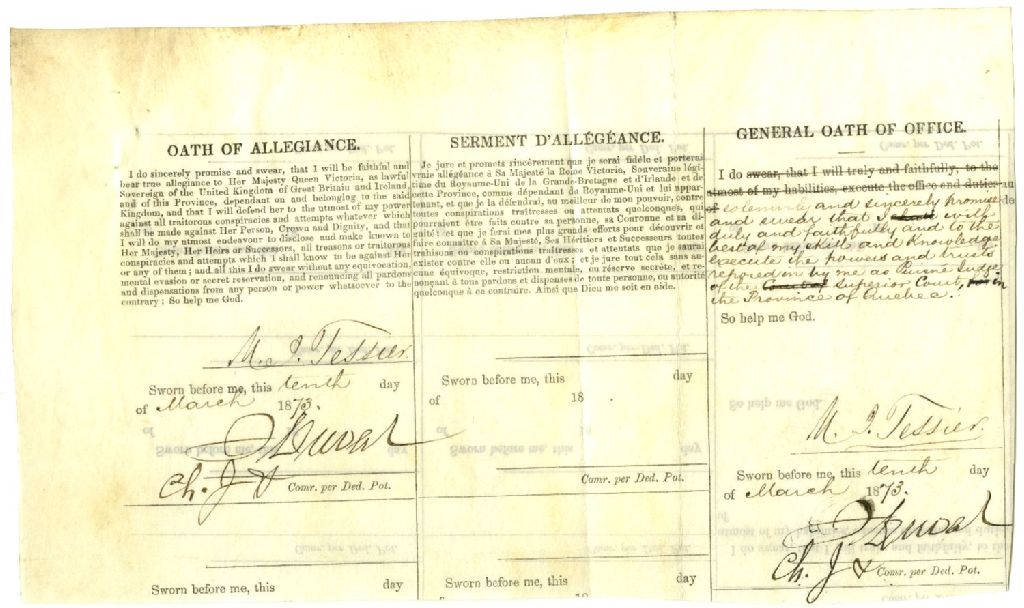 OATH OF ALLEGIANCE.
I do sincerely promise and swear, that I will be faithful and
bear true allegiance to Her Majesty Queen Victoria, as lawful
Sovereign of the United Kingdom of Great Britain and Ireland,
and of this Province, dependant on and belonging to the said
Kingdom, and that I will defend her to the utmost of my power
against all traitorous conspiracies and attempts whatever which
shall be made against Her Person, Crown and Dignity, and that
I will do my utmost endeavour to disclose and make known to
Her Majesty, Her Heirs or Successors, all treasons or traitorous
conspiracies and attempts which I shall know to be against Her
or any of them; and all this I do swear without any equivocation,
mental evasion or secret reservation, and renouncing all pardons
and dispensations from any person or power whatsoever to the
contrary: So help me God.
M. J. Tessier.
Sworn before me, this tenth day
of March 1873.
J Duval
Ch. J
Comr. per Ded. Pot.
Sworn before me, this day
SERMENT D'ALLÉGÉANCE.
Je jure et promets sincèrement que je serai fidèle et porterai
vraie allégéance à Sa Majesté la Reine Victoria, Souveraine légi-
time du Royaume-Uni de la Grande-Bretagne et d'Irlande et de
cette Province, comme dépendant du Royaume-Uni et lui appar-
tenant, et que je la défendrai, au meilleur de mon pouvoir, contre
toutes conspirations traîtresses ou attentats quelconques, qui
pourraient être faits contre sa personne, sa Couronne et sa di-
gnité; et que je ferai mes plus grands efforts pour découvrir et
faire connaître à Sa Majesté, Ses Héritiers et Successeurs toutes
trahisons ou conspirations traîtresses et attentats que je saurai
exister contre elle ou aucun d'eux; et je jure tout cela sans au-
cune équivoque, restriction mentale, ou réserve secrète, et re-
nonçant à tous pardons et dispenses de toute personne, ou autorité
quelconque à ce contraire. Ainsi que Dieu me soit en aide.
Sworn before me, this day
of 18 .
Comr. per Ded. Pot.
Sworn before me, this day
18
GENERAL OATH OF OFFICE.
I do swear, that I will truly and faithfully, to the
utmost of my habilities, execute the office and duties
of solemnly and sincerely promise
and swear that I will
duly and faithfully and to the
best of my skill and Knowledge
execute the powers and trusts
reposed in by me as Puisne Judge
of the Court of Superior Court, in
the Province of Quebec.
So help me God.
M. J. Tessier.
Sworn before me, this tenth day
of March 1873.
J Duval
Ch. J
Comr. per Ded. Pot.